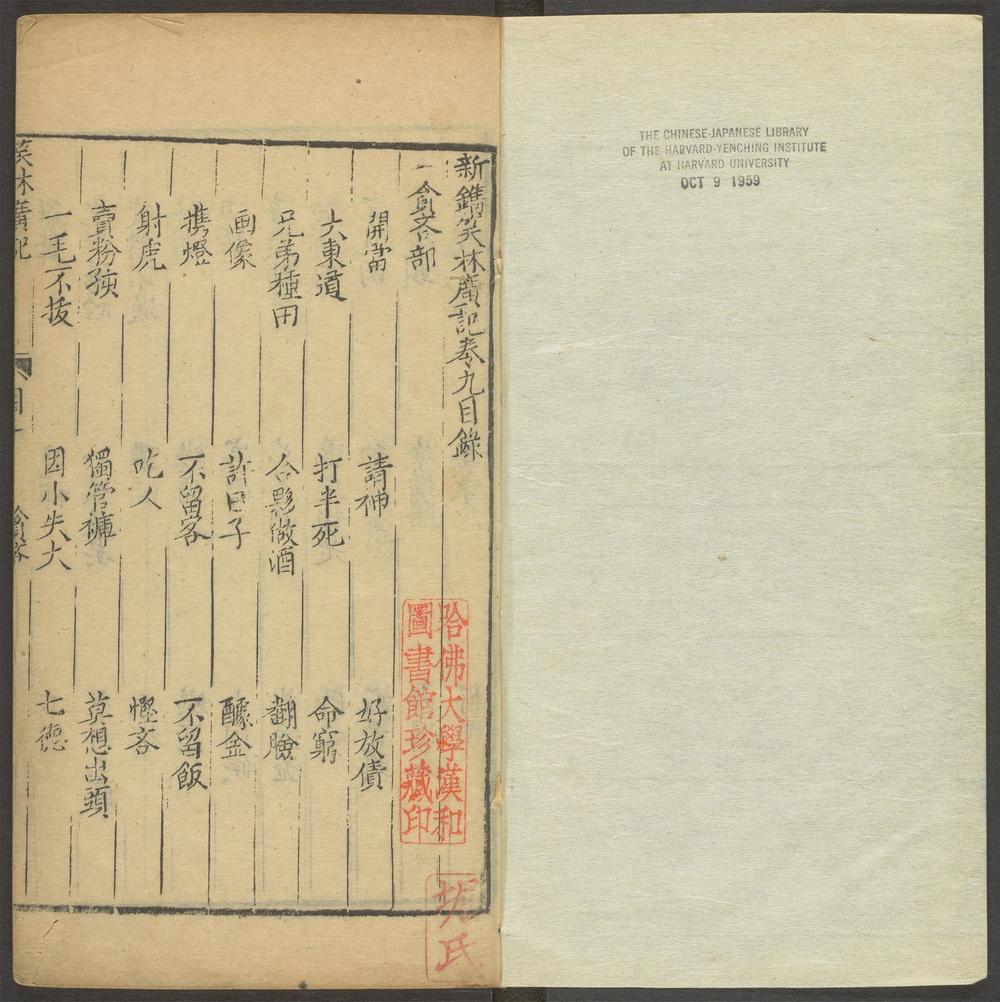 THE CHINESE-JAPANESE LIBRARY
OF THE HARVARD-YENCHING INSTITUTE
AT HARVARD UNIVERSITY
OCT 9 1959
新鐫笑林廣記卷九目錄
一貪吝部
開當 請神 好放債
大東道 打半死 命窮
兄弟種田 合夥做酒 翻臉
画像 許日子 醵金
携燈 不留客 不留飯
射虎 吃人 慳吝
賣粉孩 獨管褲 莫想出頭
一毛不拔 因小失大 七德
笑林廣記 目一 貪吝
哈佛大學漢和
圖書館珍藏印